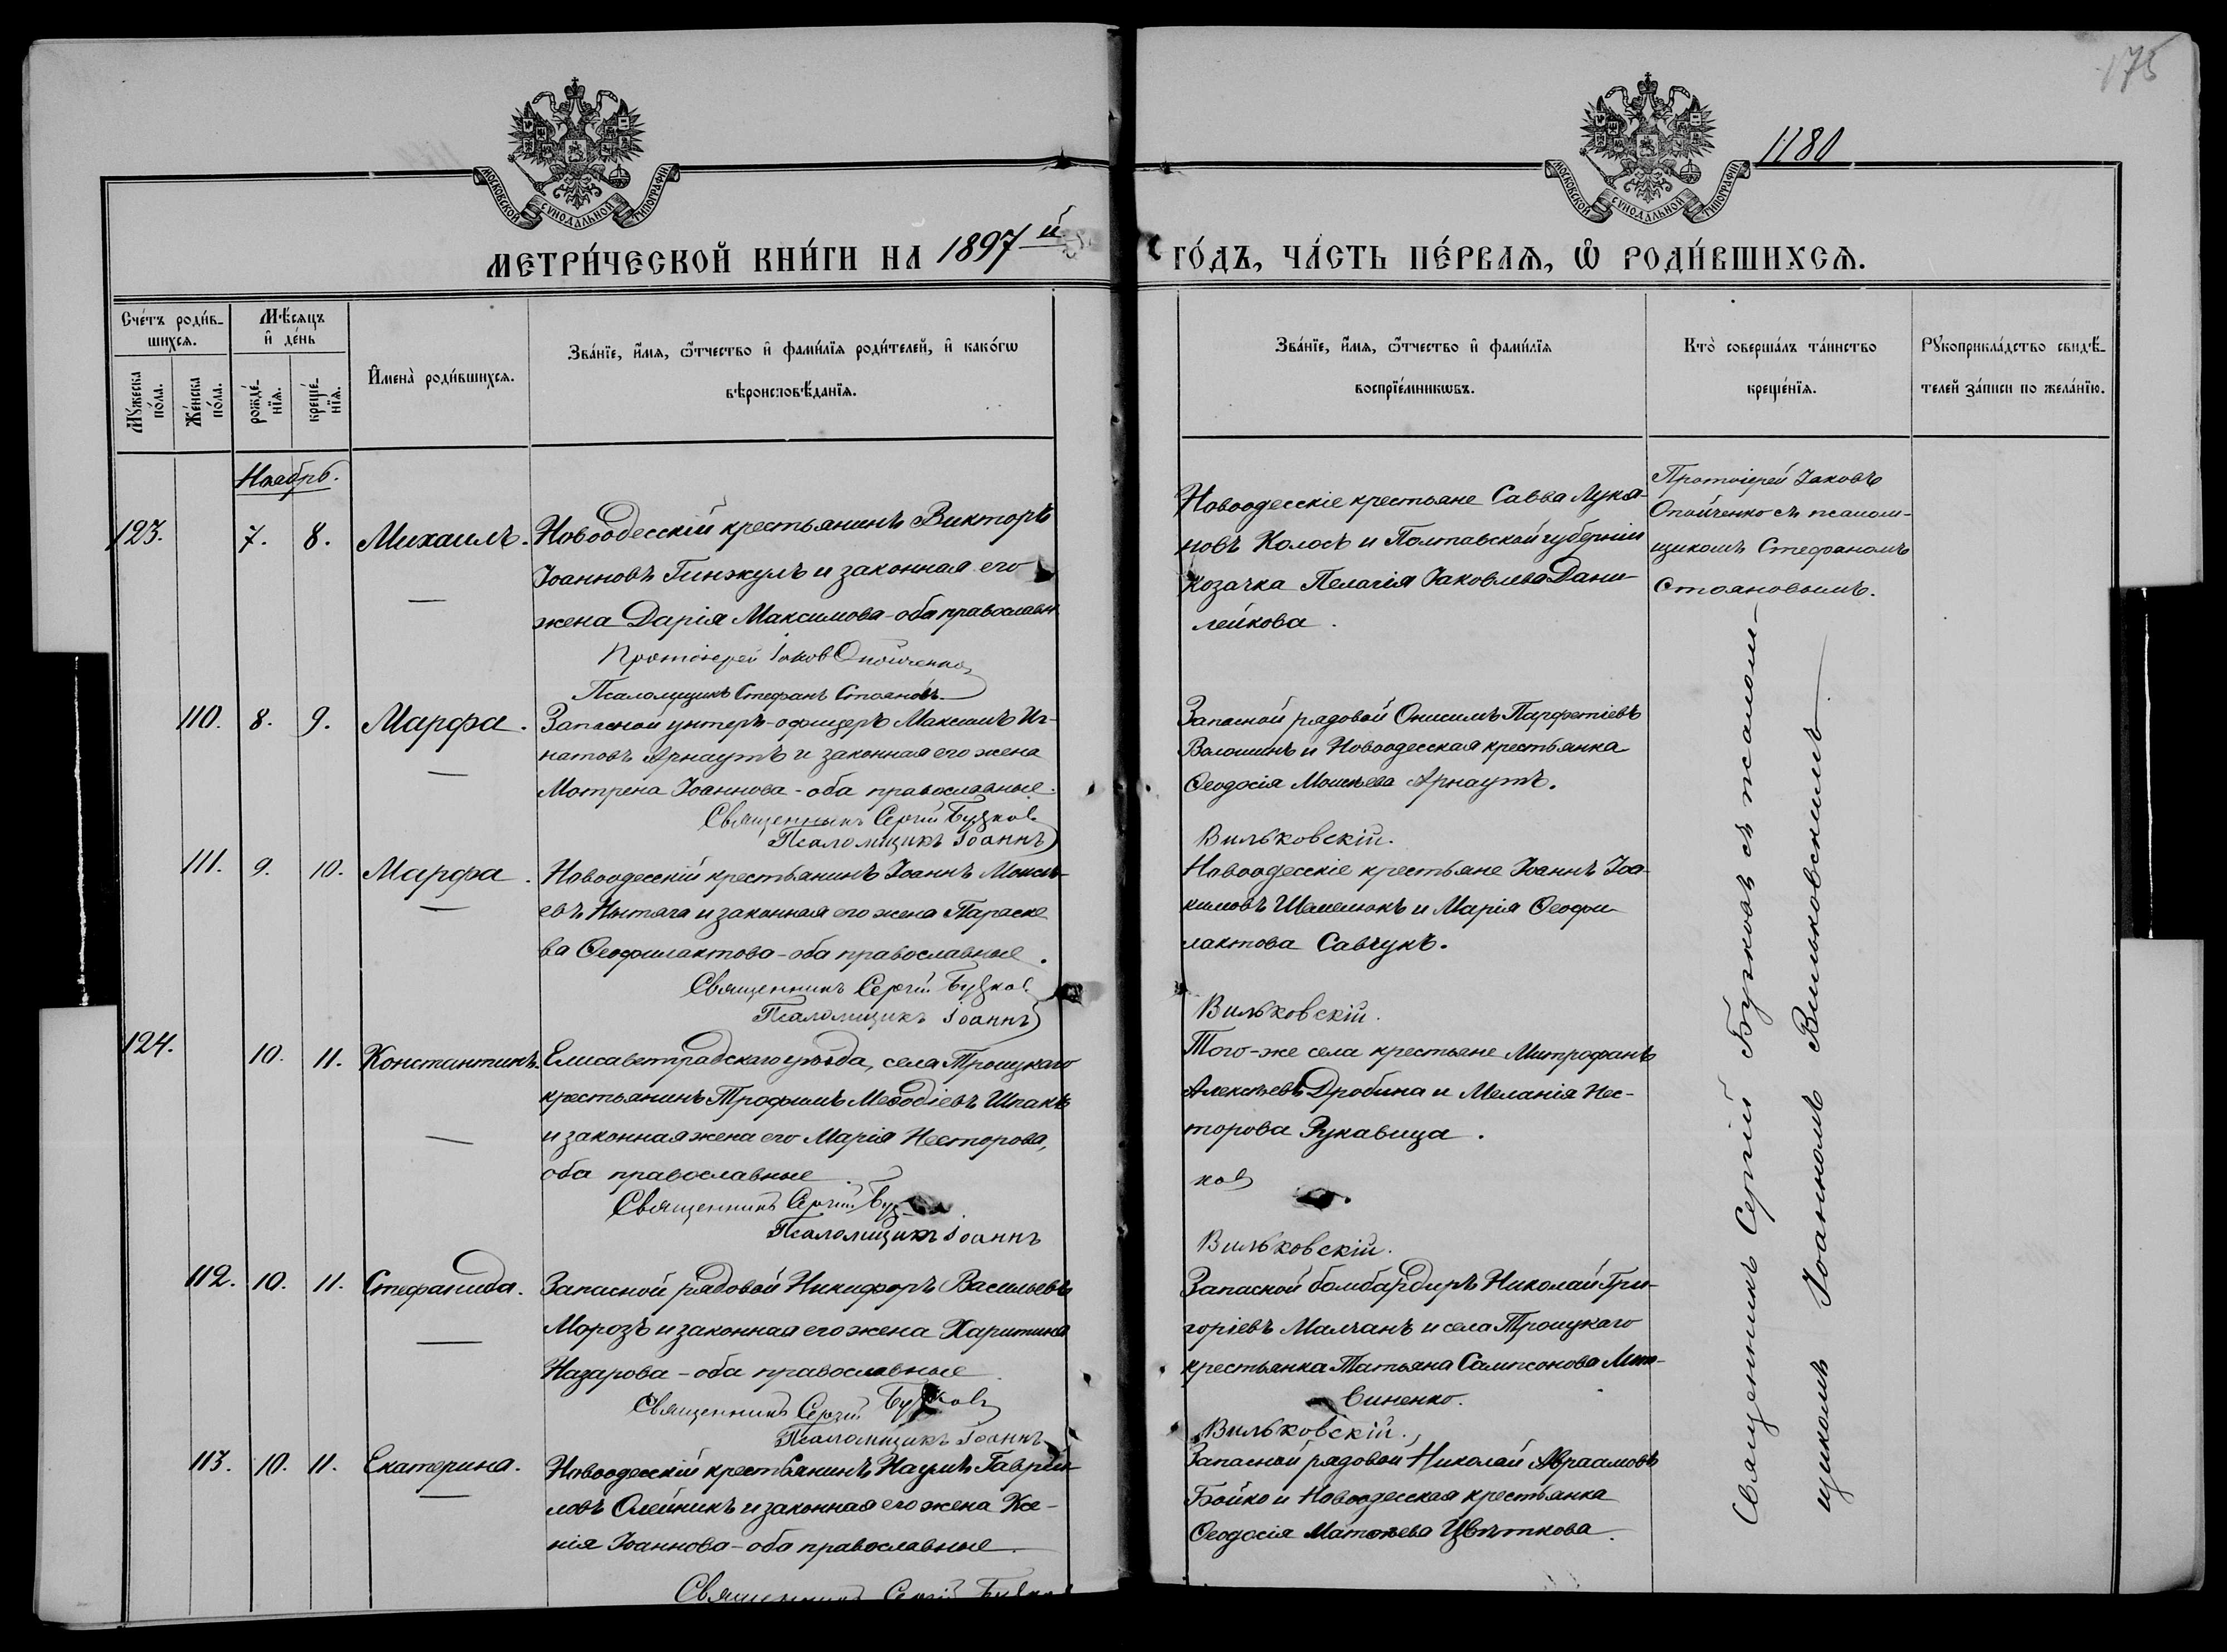 175
1180
МОСКОВСКОЙ СѴНОДАЛЬНОЙ ТИПОГРАФІИ
МОСКОВСКОЙ СѴНОДАЛЬНОЙ ТИПОГРАФІИ
МЕТРИ́ЧЕСКОЙ КНИ́ГИ НА 1897 й ГО́ДЪ, ЧА́СТЬ ПЕ́РВАѦ, Ѡ РОДИ́ВШИХСѦ.
Сче́тъ роди́в-
шихсѧ.
Мꙋ́жеска по́ла.
Же́нска по́ла.
Мѣ́сѧцъ
и҆ де́нь
рожде́-
нїѧ.
креще́-
нїѧ.
И҆мена̀ роди́вшихсѧ.
Зва́нїе, и҆́мѧ, ѻ҆́тчество и҆ фами́лїѧ роди́телей, и҆ како́гѡ
вѣроисповѣ́данїѧ.
Зва́нїе, и҆́мѧ, ѻ҆́тчество и҆ фами́лїѧ
воспрїе́мникѡвъ.
Кто̀ соверша́лъ та́инство
креще́нїѧ.
Рꙋкоприкла́дство свидѣ́-
телей за́писи по жела́нїю.
Ноябрь.
123.
7.
8.
Михаилъ.
Новоодесскій крестьянинъ Викторъ
Іоанновъ Гинжулъ и законная его
жена Дарія Максимова - оба православн
Протоіерей Іаков Опойченко
Псаломщикъ Стефанъ Стояновъ
Новоодесскіе крестьяне Савва Лукя-
новъ Колосъ и Полтавской губерніи
козачка Пелагія Іаковлева Дани-
лейкова.
Протоіерей Іаковъ
Опойченко съ псалом-
щикомъ Стефаномъ
Стояновымъ.
110.
8.
9.
Марфа.
Запасной унтеръ-офицеръ Максимъ Иг-
натовъ Арнаутъ и законная его жена
Мотрена Іоаннова - оба православные.
Священникъ Сергій Буцков
Псаломщикъ Іоаннъ
Запасной рядовой Онисимъ Парфетіевъ
Волошинъ и Новоодесская крестьянка
Ѳеодосія Моисѣева Арнаутъ.
Вильковскій.
111.
9.
10.
Марфа.
Новоодесскій крестьянинъ Іоаннъ Моисѣ-
евъ Нытяга и законная его жена Параске
ва Ѳеофилактова - оба православные.
Священникъ Сергій Буцков
Псаломщикъ Іоаннъ
Новоодесскіе крестьяне Іоаннъ Іоа-
кимовъ Шемелюкъ и Марія Ѳеофи
лактова Савчукъ.
Вильковскій.
124.
10.
11.
Константинъ.
Елисаветградскаго уѣзда, села Троицкаго
крестьянинъ Трофимъ Меѳодіевъ Шпакъ
и законная жена его Марія Несторова,
оба православные.
Священникъ Сергій Буц
Псаломщикъ Іоаннъ
Того-же села крестьяне Митрофанъ
Алексѣевъ Дробина и Меланія Нес-
торова Рукавица.
ков
Вильковскій.
112.
10.
11.
Стефанида.
Запасной рядовой Никифоръ Васильевъ
Морозъ и законная его жена Харитина
Назарова - оба православные.
Священникъ Сергій Буцковъ
Псаломщикъ Іоаннъ
Запасной бомбардиръ Николай Гри-
горіевъ Малчанъ и села Троицкаго
крестьянка Татьяна Сампсонова Лит-
виненко.
Вильковскій.
113.
10.
11.
Екатерина.
Новоодесскій крестьянинъ Наумъ Гаврїи-
ловъ Олейникъ и законная его жена Ксе-
нія Іоаннова - оба православные.
Священникъ Сергій Буцков
Запасной рядовой Николай Авраамовъ
Бойко и Новоодесская крестьянка
Ѳеодосія Матѳеева Цвѣткова.
Священникъ Сергій Буцковъ съ псалом-
щикомъ Іоанномъ Вильковскимъ.